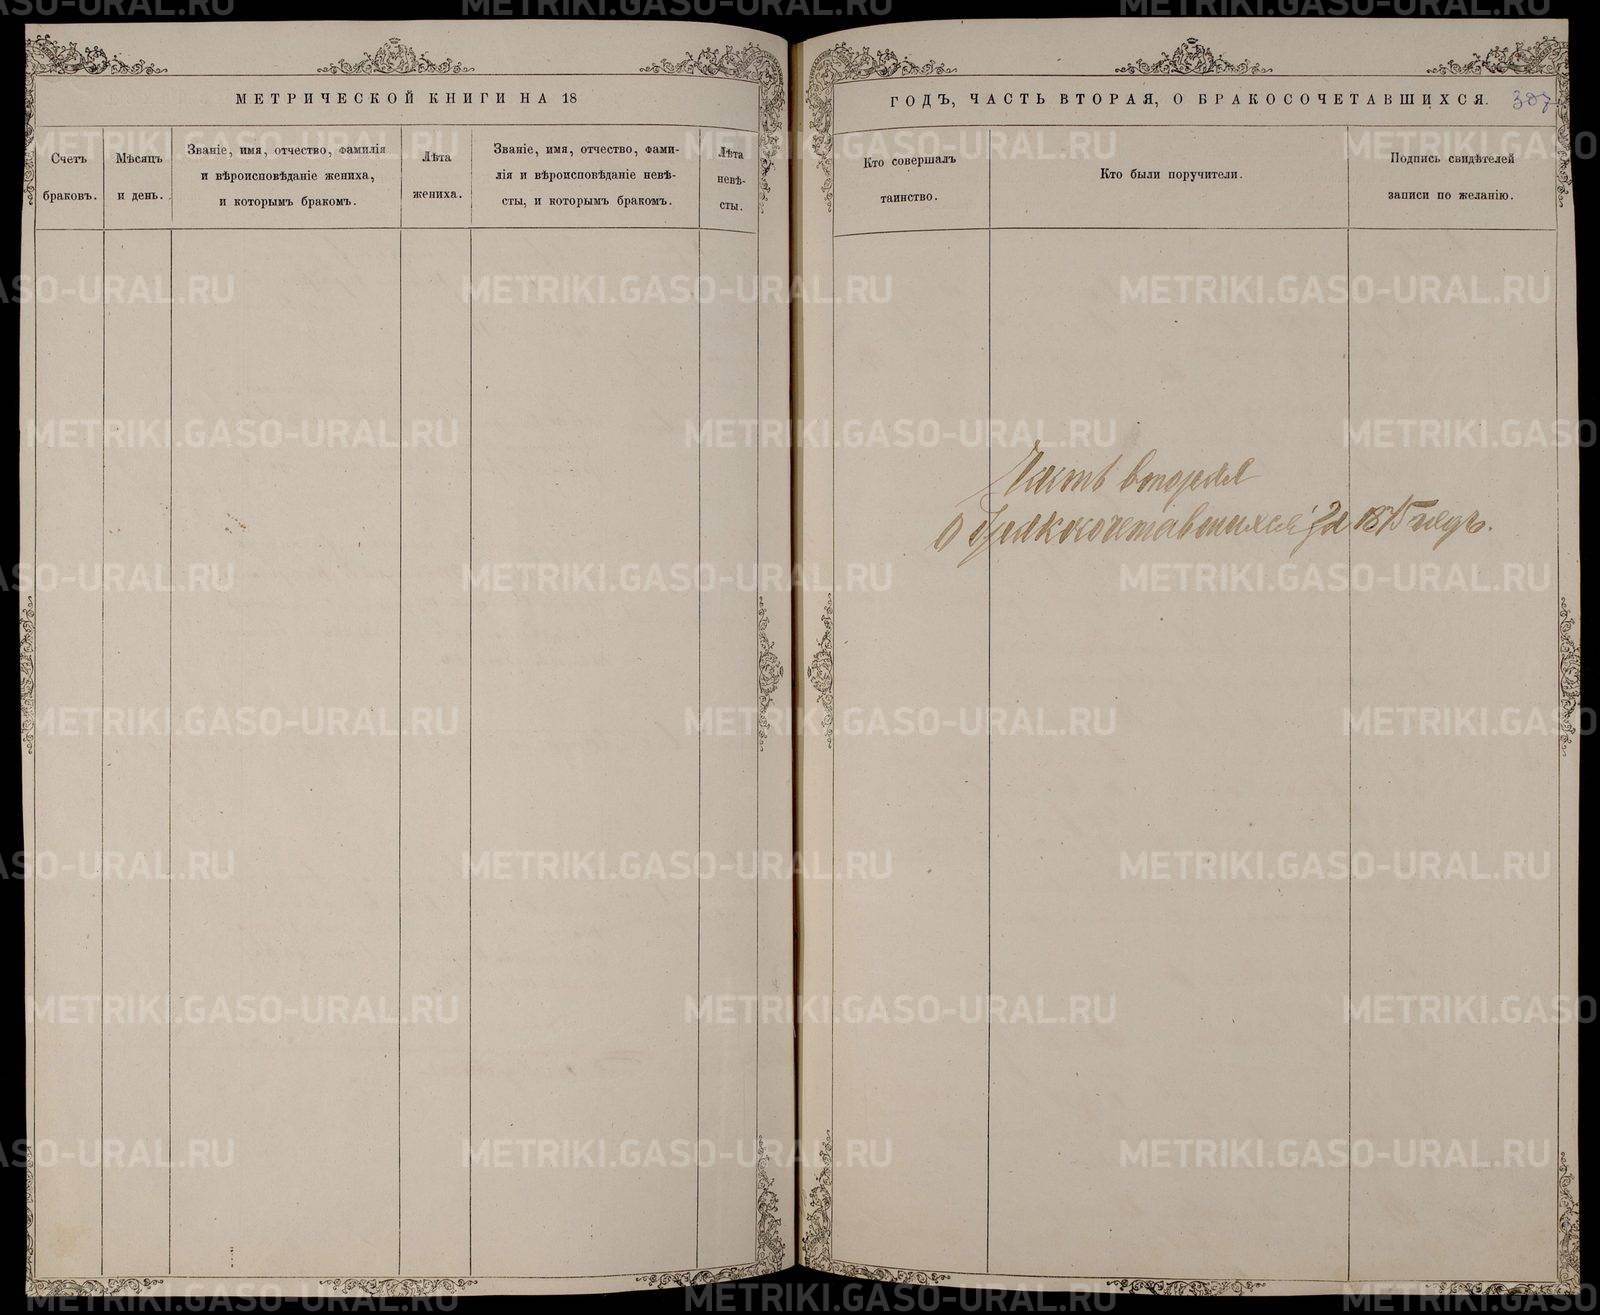 МЕТРИЧЕСКОЙ КНИГИ НА 18
Счетъ браковъ.
Мѣсяцъ и день.
Званіе, имя, отчество, фамилія
и вѣроисповѣданіе жениха,
и которымъ бракомъ.
Лѣта жениха.
Званіе, имя, отчество, фами-
лія и вѣроисповѣданіе невѣ-
сты, и которымъ бракомъ.
Лѣта
невѣ-
сты.
ГОДЪ, ЧАСТЬ ВТОРАЯ, О БРАКОСОЧЕТАВШИХСЯ.
307
Кто совершалъ
таинство.
Кто были поручители.
Подпись свидѣтелей
записи по желанію.
Часть вторая
О бракосочетавшихся за 1875 годъ.
METRIKI.GASO-URAL.RU